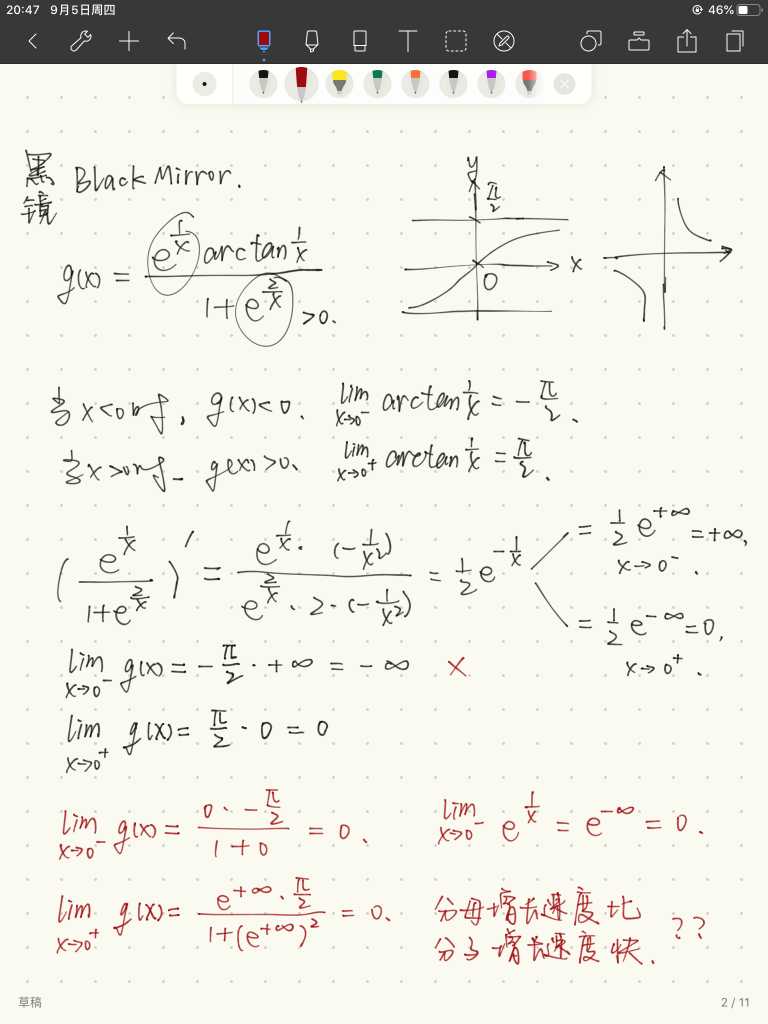 20:47 9月5日周四
46%
T
黑镜 Black Mirror.
g(x) = \frac{e^{\frac{1}{x}} arctan\frac{1}{x}}{1+e^{\frac{2}{x}}} >0.
y
\frac{π}{2}
x
0
当x<0时, g(x)<0. \lim_{x→0^-} arctan\frac{1}{x} = -\frac{π}{2}.
当x>0时, g(x)>0. \lim_{x→0^+} arctan\frac{1}{x} = \frac{π}{2}.
(\frac{e^{\frac{1}{x}}}{1+e^{\frac{2}{x}}})' = \frac{e^{\frac{1}{x}}·(-\frac{1}{x^2})}{e^{\frac{2}{x}}·2·(-\frac{1}{x^2})} = \frac{1}{2}e^{-\frac{1}{x}}
= \frac{1}{2}e^{+∞} = +∞,
x→0^-.
= \frac{1}{2}e^{-∞} = 0,
x→0^+.
\lim_{x→0^-} g(x) = -\frac{π}{2}·+∞ = -∞ ×
\lim_{x→0^+} g(x) = \frac{π}{2}·0 = 0
\lim_{x→0^-} g(x) = \frac{0·-\frac{π}{2}}{1+0} = 0. \lim_{x→0^-} e^{\frac{1}{x}} = e^{-∞} = 0.
\lim_{x→0^+} g(x) = \frac{e^{+∞}·\frac{π}{2}}{1+(e^{+∞})^2} = 0.
分母增长速度比
分子增长速度快. ??
草稿
2 / 11